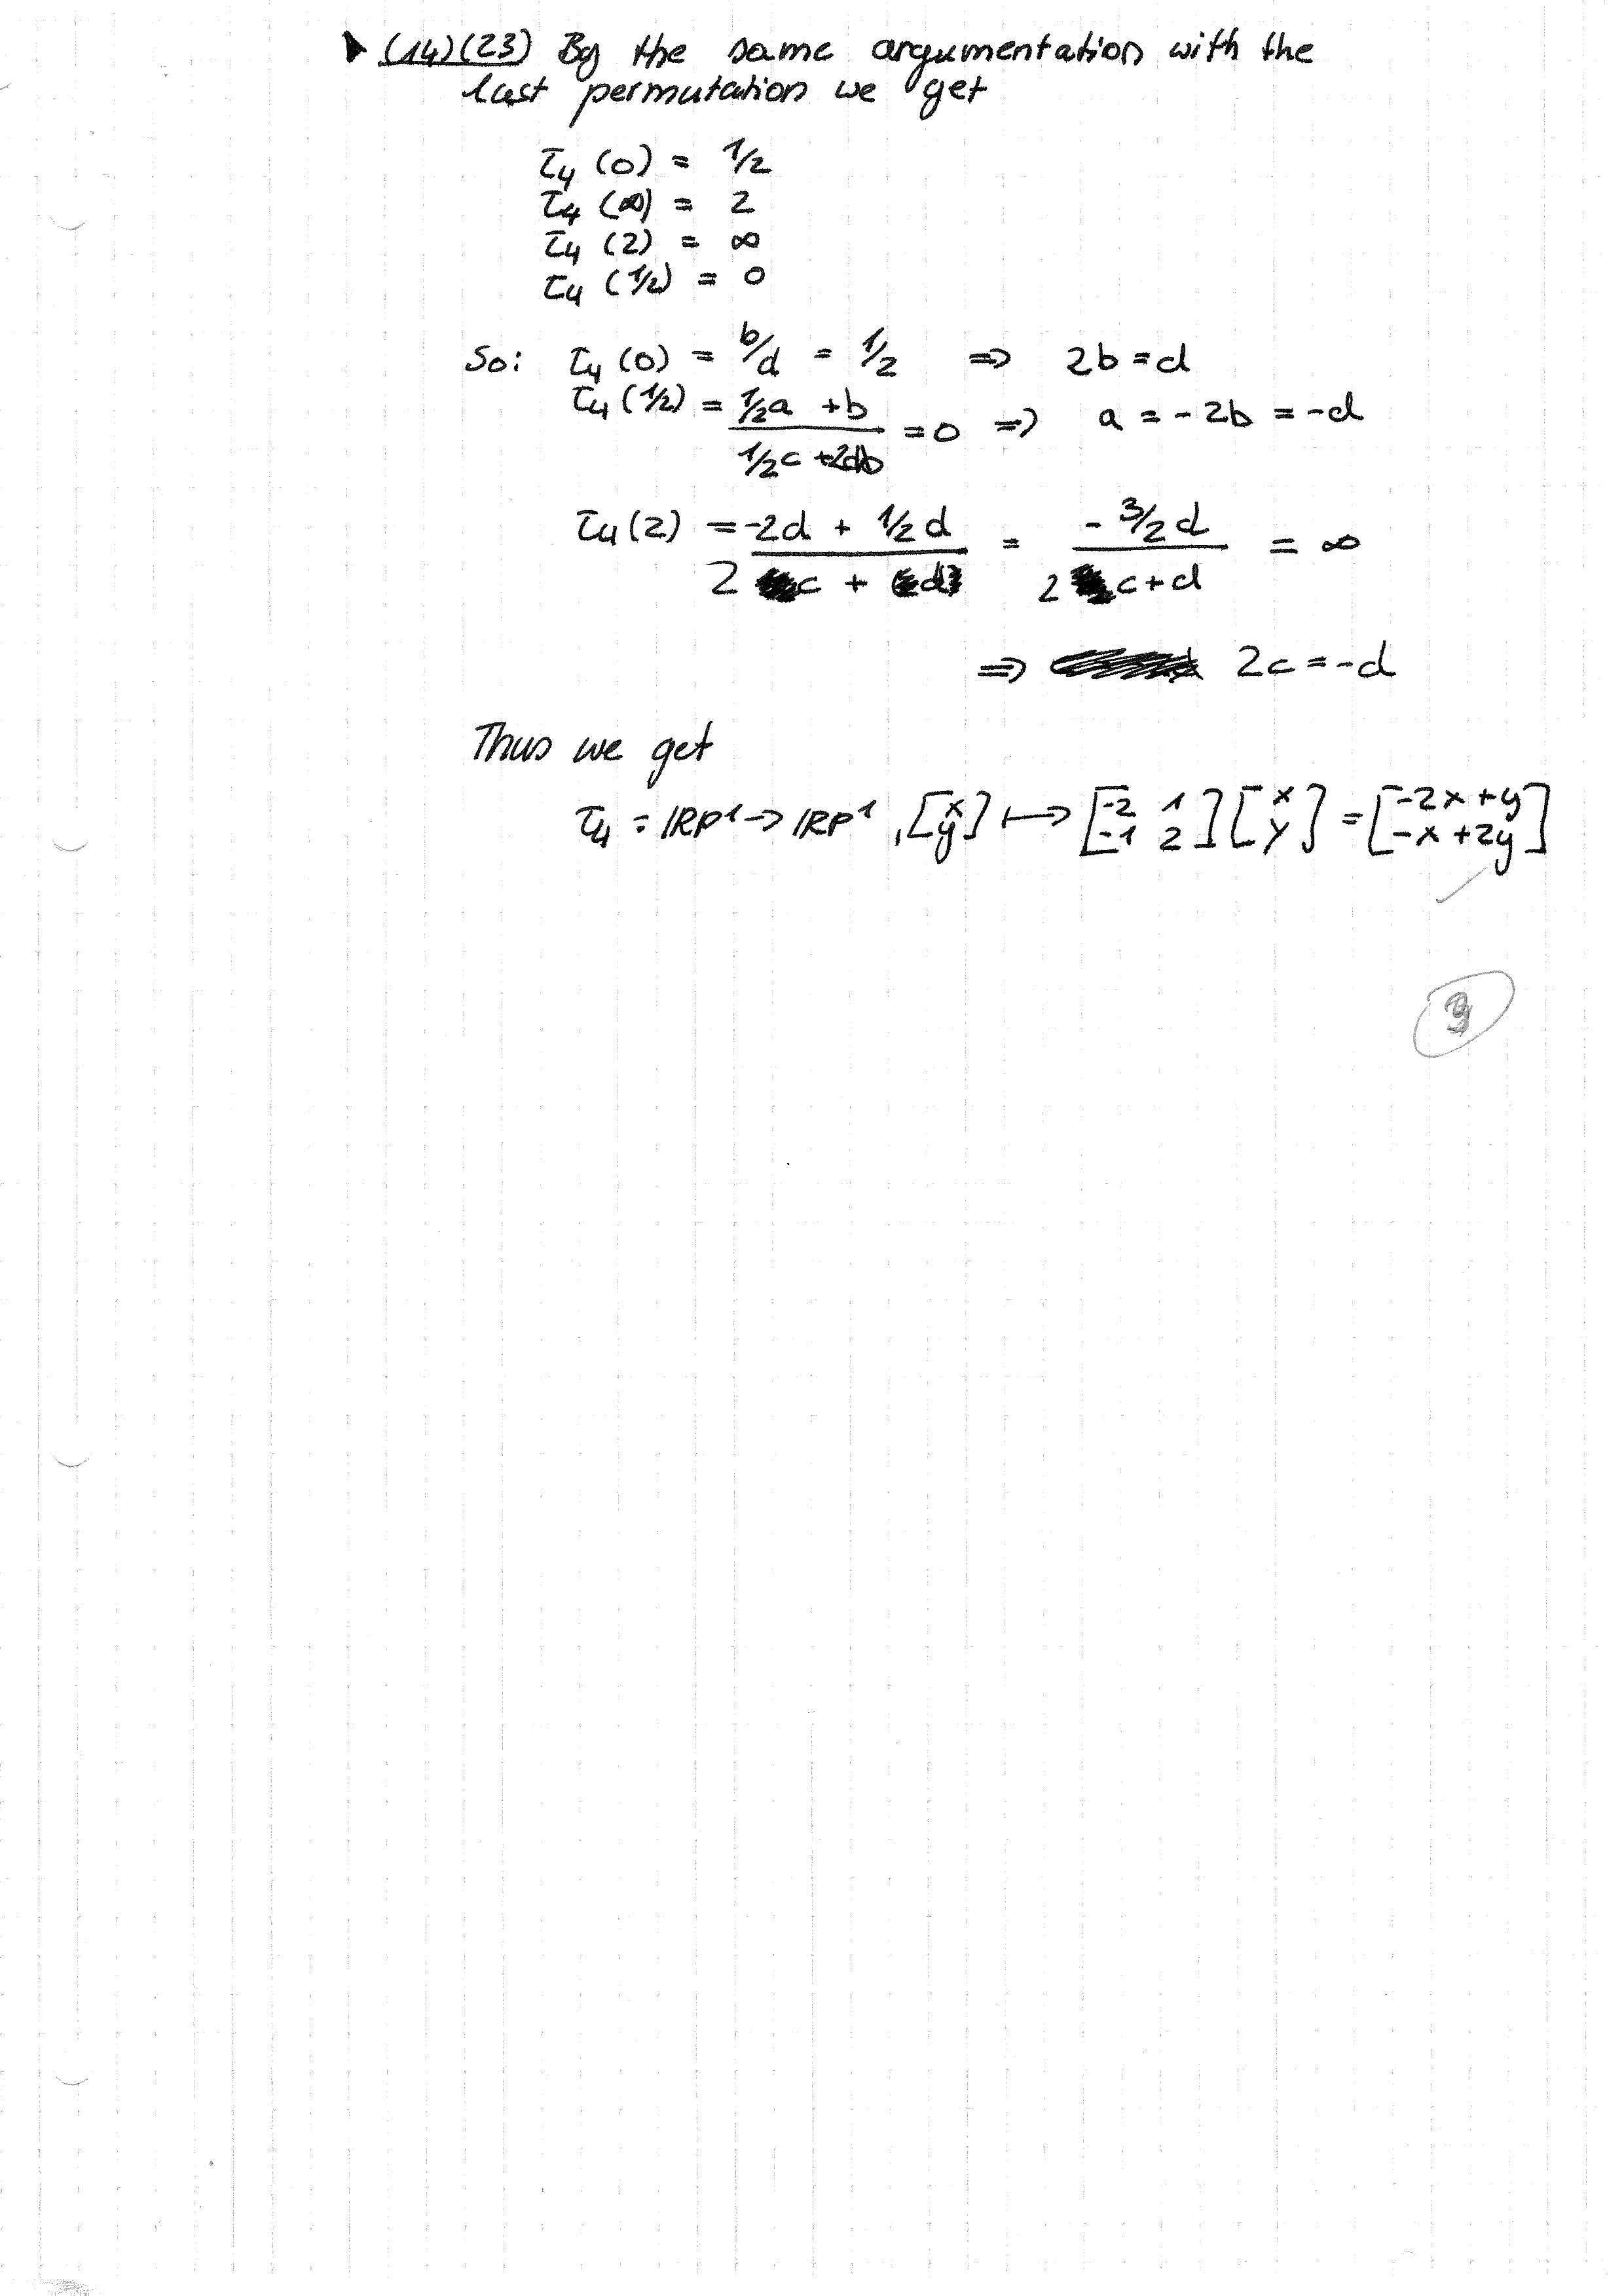 ▶ (14)(23) By the same argumentation with the
last permutation we get
τ₄ (0) = 1/2
τ₄ (∞) = 2
τ₄ (2) = ∞
τ₄ (1/2) = 0
So: τ₄ (0) = b/d = 1/2 ⇒ 2b = d
τ₄ (1/2) = (1/2a + b)/(1/2c + 2b) = 0 ⇒ a = -2b = -d
τ₄ (2) = (-2d + 1/2 d)/(2 c + d) = (- 3/2 d)/(2 c + d) = ∞
⇒ 2c = -d
Thus we get
τ₄ : RP¹ → RP¹, [x y] ↦ [-2 1 -1 2] [x y] = [-2x + y -x + 2y]
3